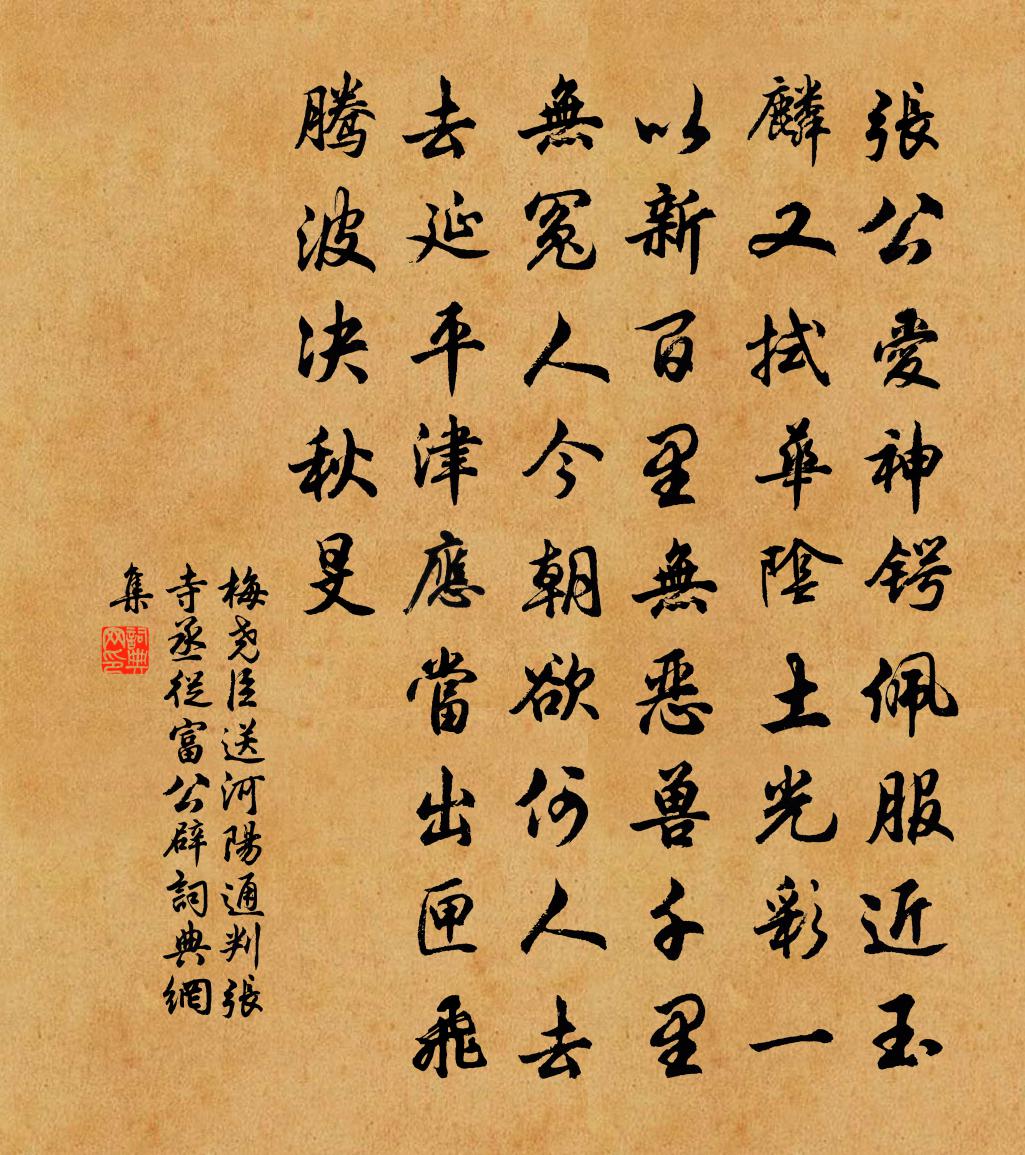 張公愛神锷佩服近玉
麟又拭華陰土光彩一
以新百里無惡兽千里
無冤人今朝欲何人去
去延平津應當出匣飛
騰波决秋旻
梅尧臣送河陽通判張
寺丞從富公辟詞典網
集
詞典網印